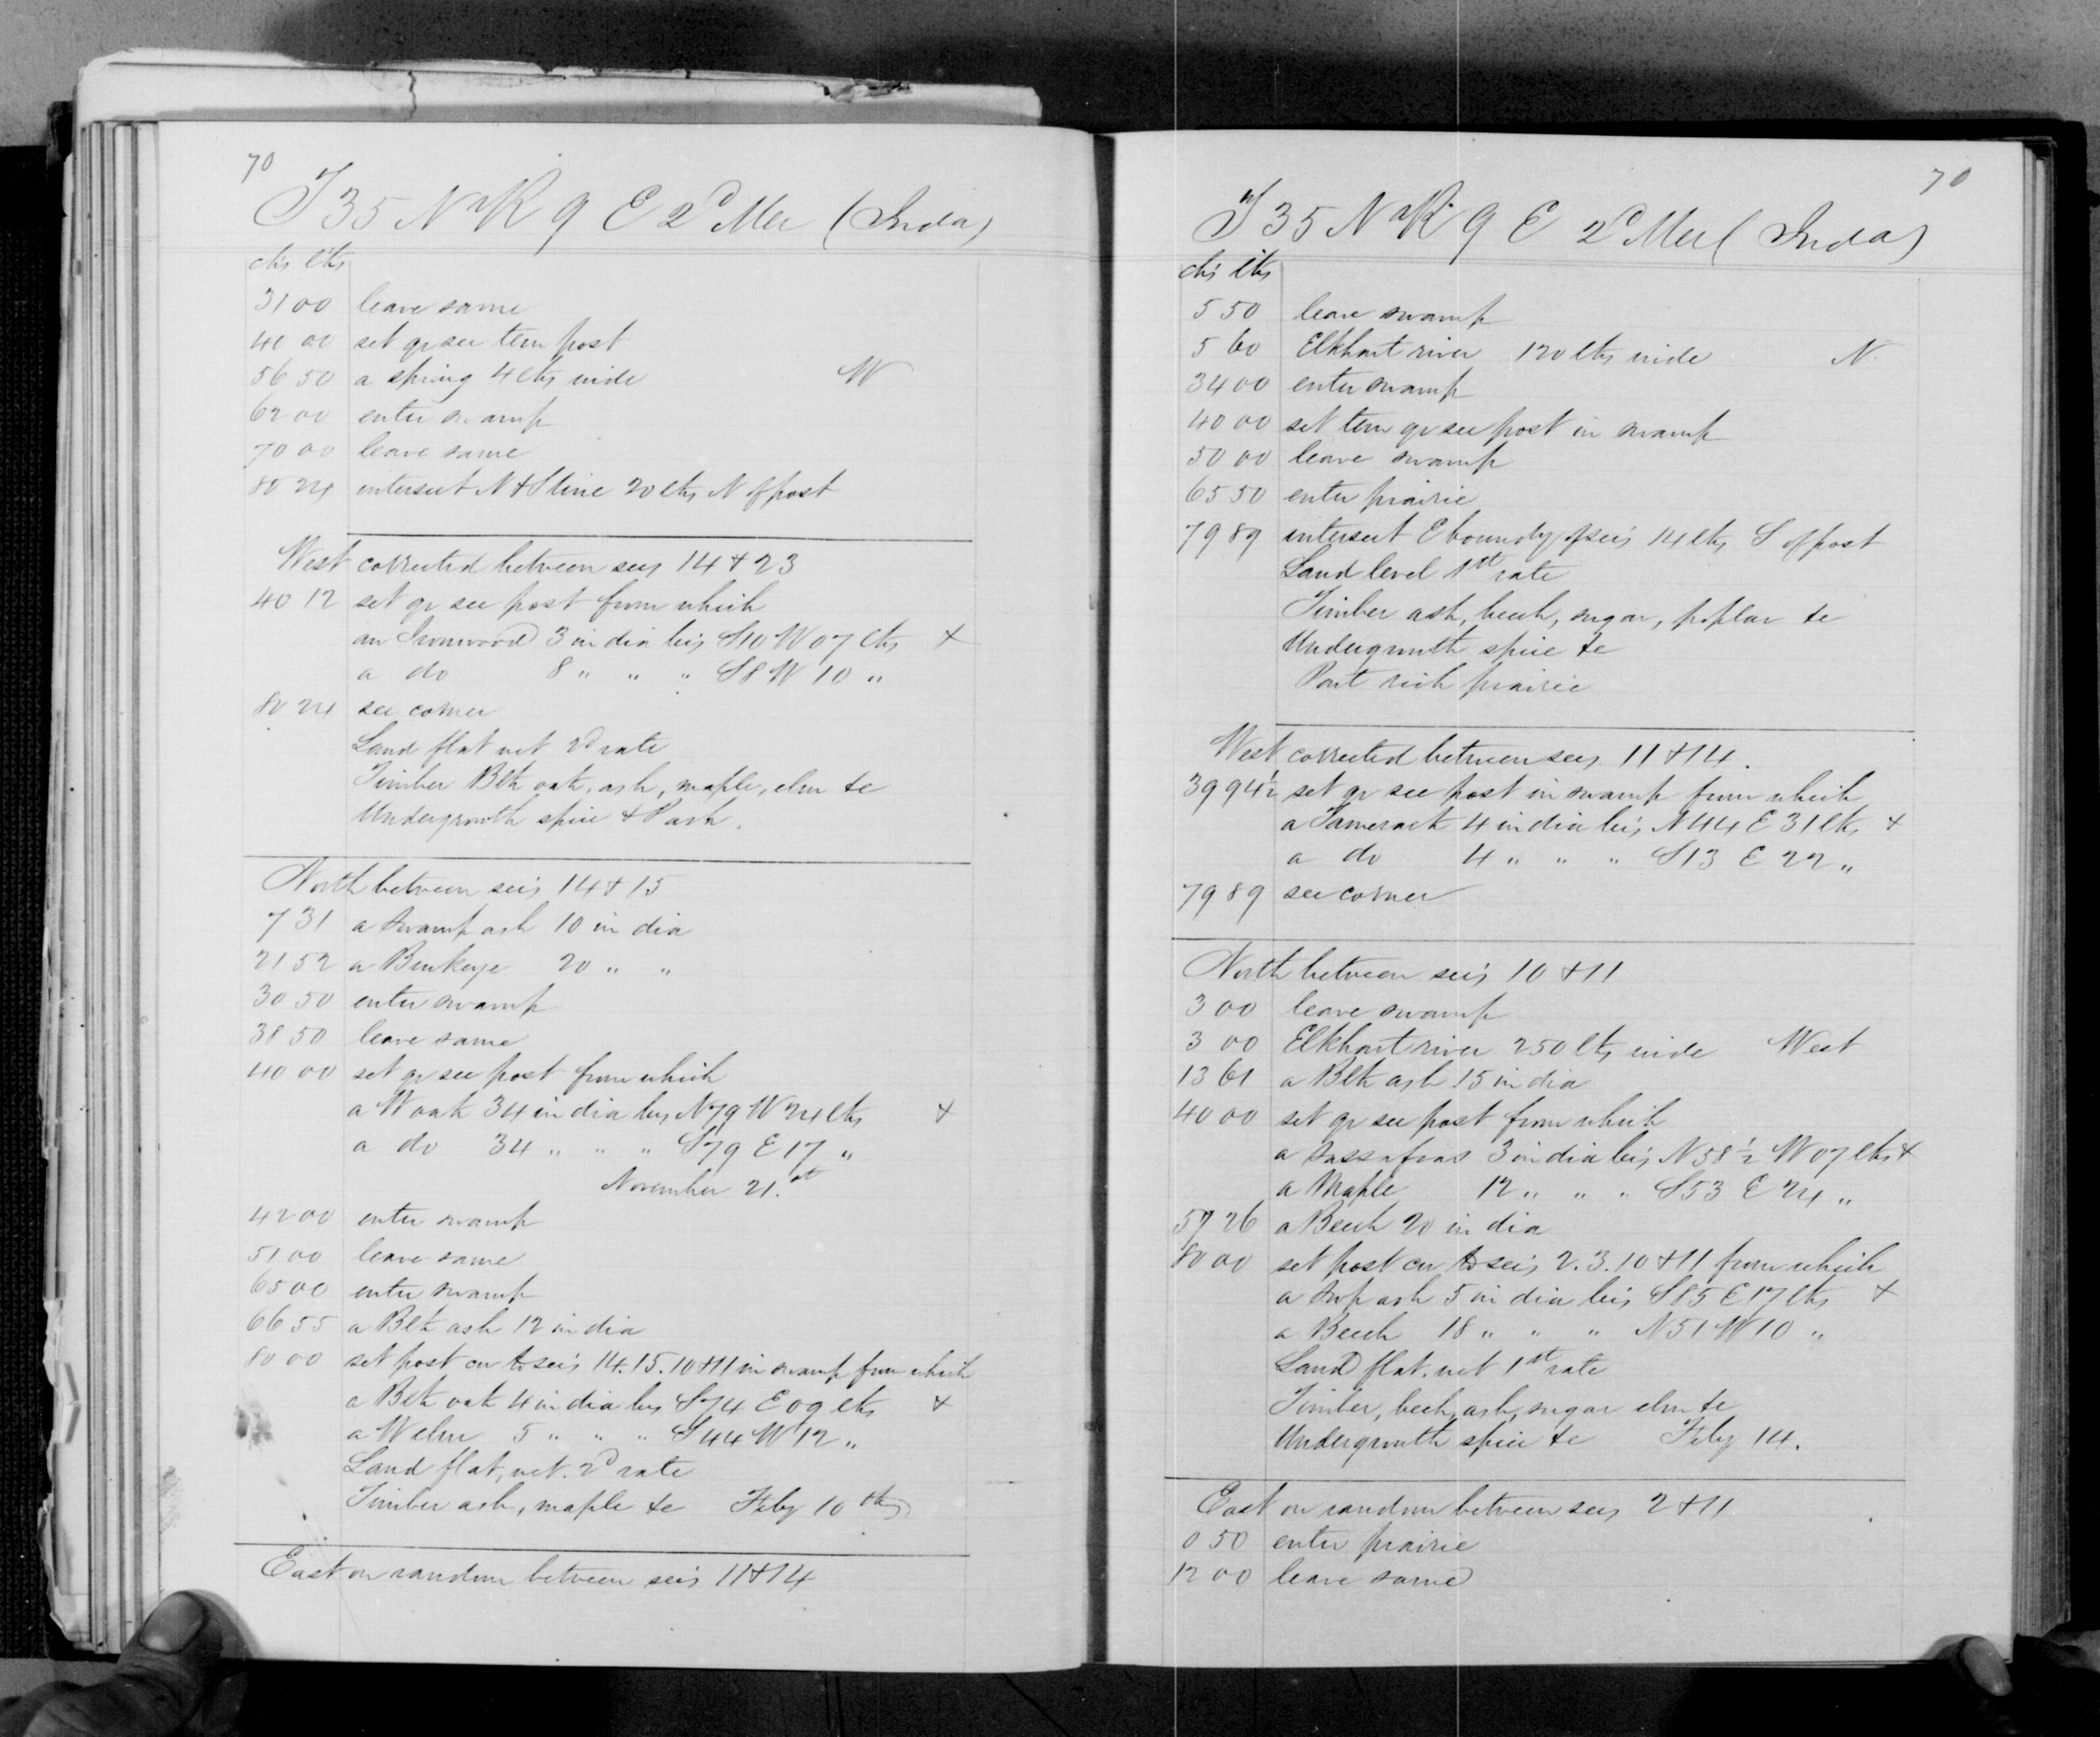 70
T 35 N R 9 E 2d Mer (Inda)
chs lks
31 00 leave same
40 00 set qr sec tem post
56 50 a spring 4 lks wide W
62 00 enter swamp
70 00 leave same
80 24 intersect N & S line 20 lks N of post
West corrected between secs 14 & 23
40 12 set qr sec post from which
an Ironwood 3 in dia brs S10 W 07 lks +
a do 8 " " " S8 W 10 "
80 24 sec corner
Land flat wet 2d rate
Timber Blk oak, ash, maple, elm &c
Undergrowth spice & P ash.
North between sec's 14 & 15
7 31 a Swamp ash 10 in dia
21 52 a Buckeye 20 " "
30 50 enter swamp
38 50 leave same
40 00 set qr sec post from which
a W oak 34 in dia brs N79 W 24 lks +
a do 34 " " " S79 E 17 "
November 21.st
42 00 enter swamp
51 00 leave same
65 00 enter swamp
66 55 a Blk ash 12 in dia
80 00 set post cor to sec's 14.15.10 & 11 in swamp from which
a Blk oak 4 in dia brs S74 E 09 lks +
a W elm 5 " " " S44 W 12 "
Land flat, wet. 2d rate
Timber ash, maple &c Feby 10th
East on random between sec's 11 & 14
70
T 35 N R 9 E 2d Mer (Inda)
chs lks
5 50 leave swamp
5 60 Elkhart river 120 lks wide N
34 00 enter swamp
40 00 set tem qr sec post in swamp
50 00 leave swamp
65 50 enter prairie
79 89 intersect E boundy of sec's 14 lks S of post
Land level 1st rate
Timber ash, beech, sugar, poplar &c
Undergrowth spice &c
Part rich prairie
West corrected between secs 11 & 14.
39 94½ set qr sec post in swamp from which
a Tamerack 4 in dia brs N44 E 31 lks +
a do 4 " " " S13 E 22 "
79 89 sec corner
North between sec's 10 & 11
3 00 leave swamp
3 00 Elkhart river 250 lks wide West
13 61 a Blk ash 15 in dia
40 00 set qr sec post from which
a Sassafras 3 in dia brs N58½ W 07 lks +
a Maple 12 " " " S53 E 24 "
57 26 a Beech 20 in dia
80 00 set post cor to sec's 2.3.10 & 11 from which
a Swp ash 5 in dia brs S85 E 17 lks +
a Beech 18 " " " N51 W 10 "
Land flat. wet 1st rate
Timber, beech, ash, sugar elm &c
Undergrowth spice &c Feby 14.
East on random between secs 2 & 11
0 50 enter prairie
12 00 leave same